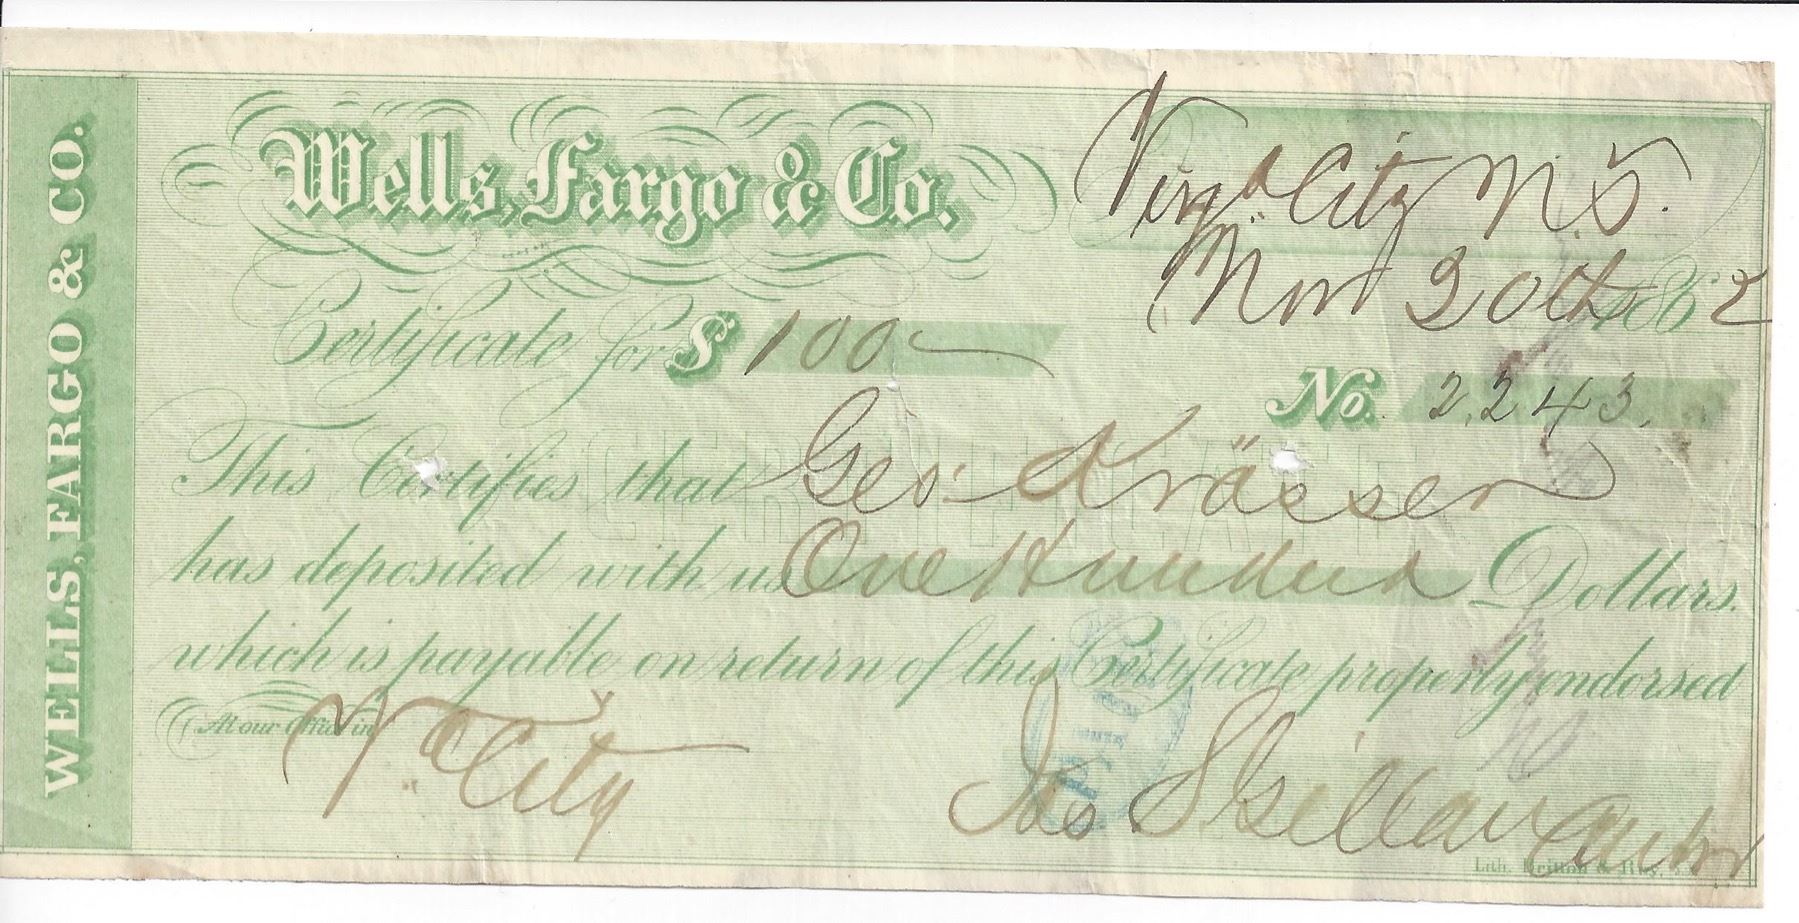 WELLS, FARGO & CO.
Wells, Fargo & Co.
Virga City N.S.
Nov 20th 1862
Certificate for $ 100
No. 2243.
CERTIFICATE
This Certifies that Geo: Krässer
has deposited with us One Hundred Dollars.
which is payable on return of this Certificate properly endorsed
At our Office in Va City
PAID
Lith. Britton & Rey